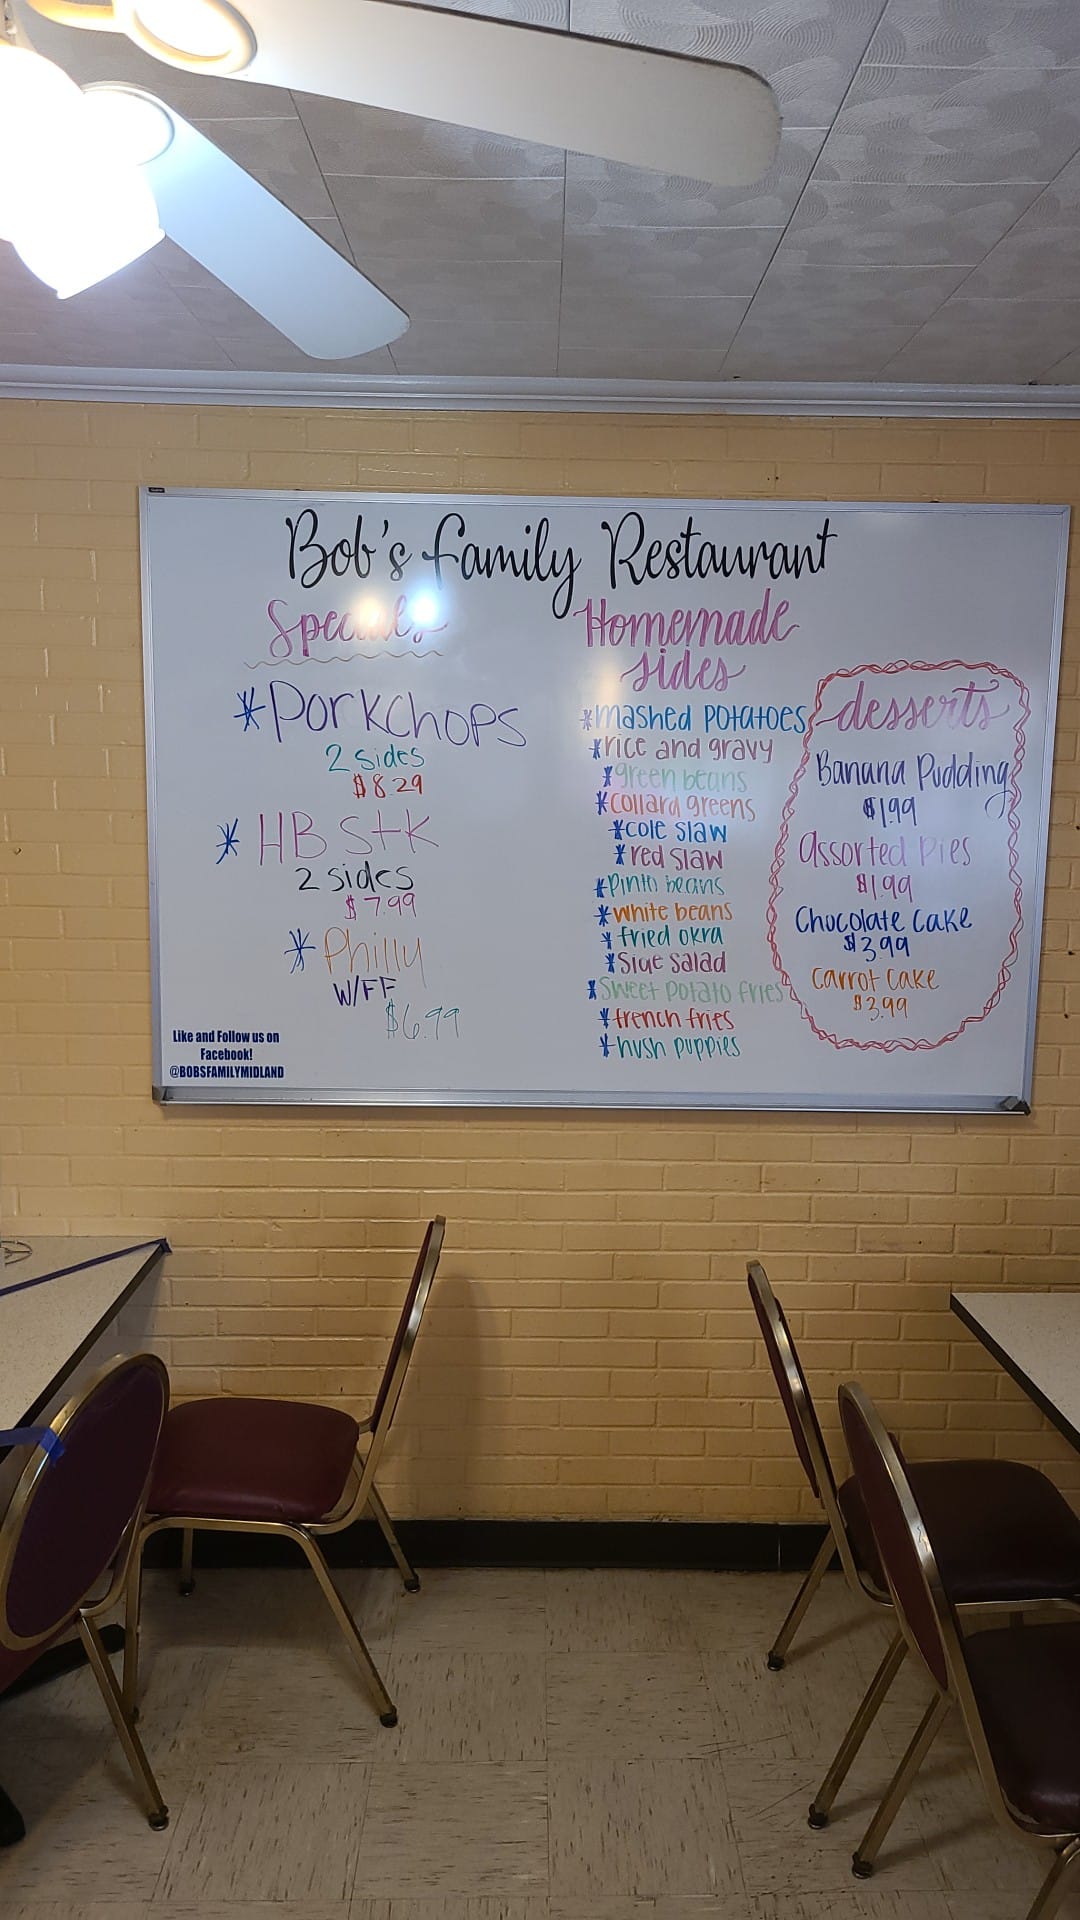 Bob's Family Restaurant
Specials
*Porkchops
2 sides
$8.29
*HB Stk
2 sides
$7.99
*Philly
W/FF
$6.99
Like and Follow us on
Facebook!
@BOBSFAMILYMIDLAND
Homemade
sides
*mashed potatoes
*rice and gravy
*green beans
*collard greens
*cole slaw
*red slaw
*pinto beans
*white beans
*fried okra
*Side Salad
*Sweet potato fries
*french fries
*hush puppies
desserts
Banana Pudding
$1.99
assorted pies
$1.99
Chocolate Cake
$3.99
Carrot Cake
$3.99